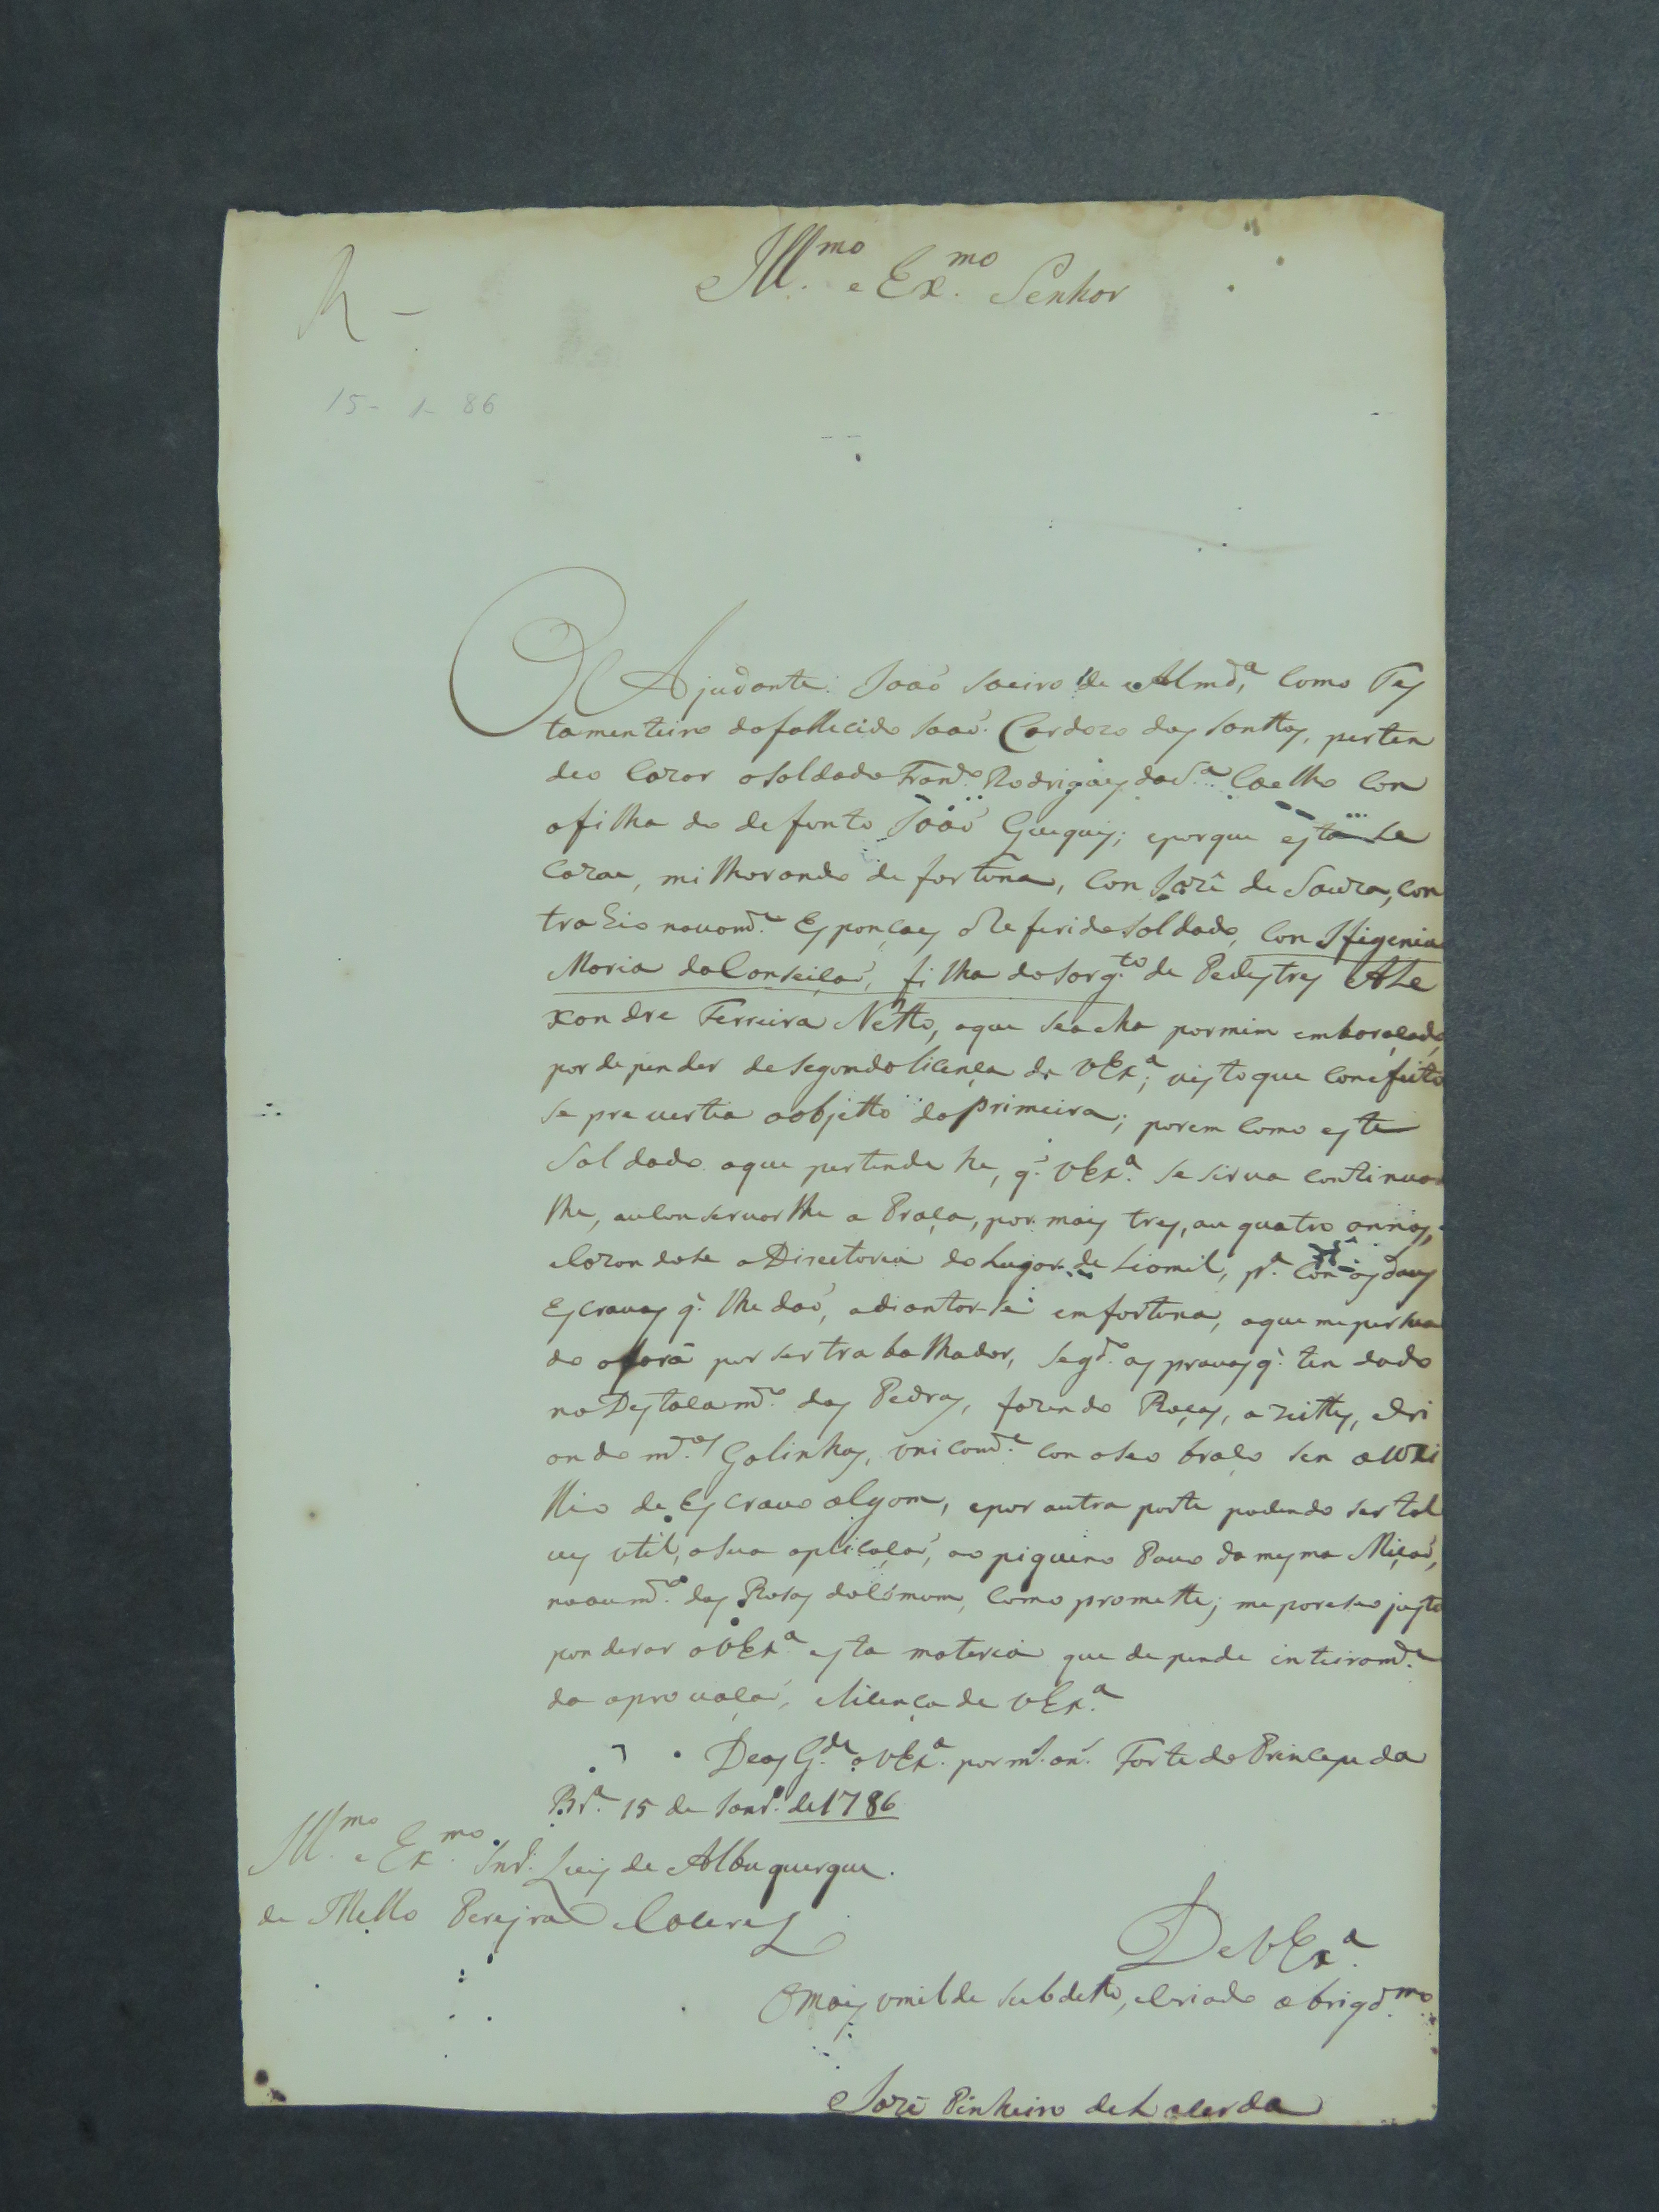 Ill.mo e Ex.mo Senhor
R -
15 - 1 - 86
O Ajudante Joaó Soeiro de Almd.ª Como Tes
tamenteiro do fallecido Joaó Cardozo dos Santtos, perten
deo Cazar o Soldado Fran.co Rodrigues da S.ª Coelho Con
a filha do defunto Joaó Gueques; eporque esta se
Cazou, milhorando de fortuna, Con Jozê de Souza, con
trahio novom.te Esponçaes o Referido Soldado, Con Ifigenia
Maria da Conseiçaó, filha do Sarg.to de Pedestres Ale
xandre Ferreira Netto, aque seacha pormim embaraçado,
por depender de segunda licença de VEx.ª; visto que Conefeito
se prevertia oobjetto da primeira; porem Como este
Soldado oque pertende he, q.' VEx.ª se sirva continuar
lhe, auConservar lhe a Praça, por mais tres, au quatro annos,
eCazandose a Directoria do Lugar de Liomil, p.ª Con os dous
Escravos q.' lhe daó, adiantar-se em fortuna, oque me persua
do ofará por ser trabalhador, seg.do as provas q.' tem dado
no Destacam.to das Pedras, fazendo Roças, azeittes, eCri
ando m.tas Galinhas, unicam.te Con oseo braço sem auxi
llio de Escravo algum, epor outra parte podendo ser tal
ves util, a sua aplicaçaó, ao piqueno Povo da mesma Miçaó,
noaum.to das Rosas do Cómum, Como promette; me pareseo justo
ponderar a VEx.ª esta materia que depende inteiram.te
da aprovaçaó, eLicença de VEx.ª
Deos G.de a VEx.ª por m.s an.s Forte do Princepe da
Br.ª 15 de Janr.o de 1786
Ill.mo e Ex.mo Snr. Luis de Albuquerque
de Mello Pereyra eCaceres
De VEx.ª
O mais umilde Subdetto, eCriado obrigd.mo
Jozê Pinheiro de Lacerda